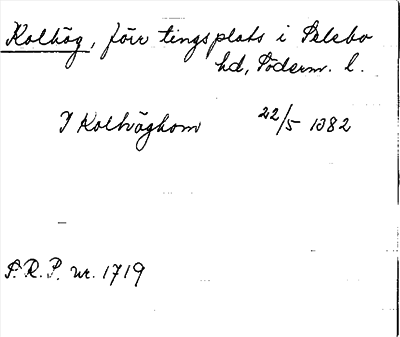 Kolhög, förr tingsplats i Selebo
hd, Söderm. l.
I Kolhöghom 22/5 1382
S.R.P. nr. 1719